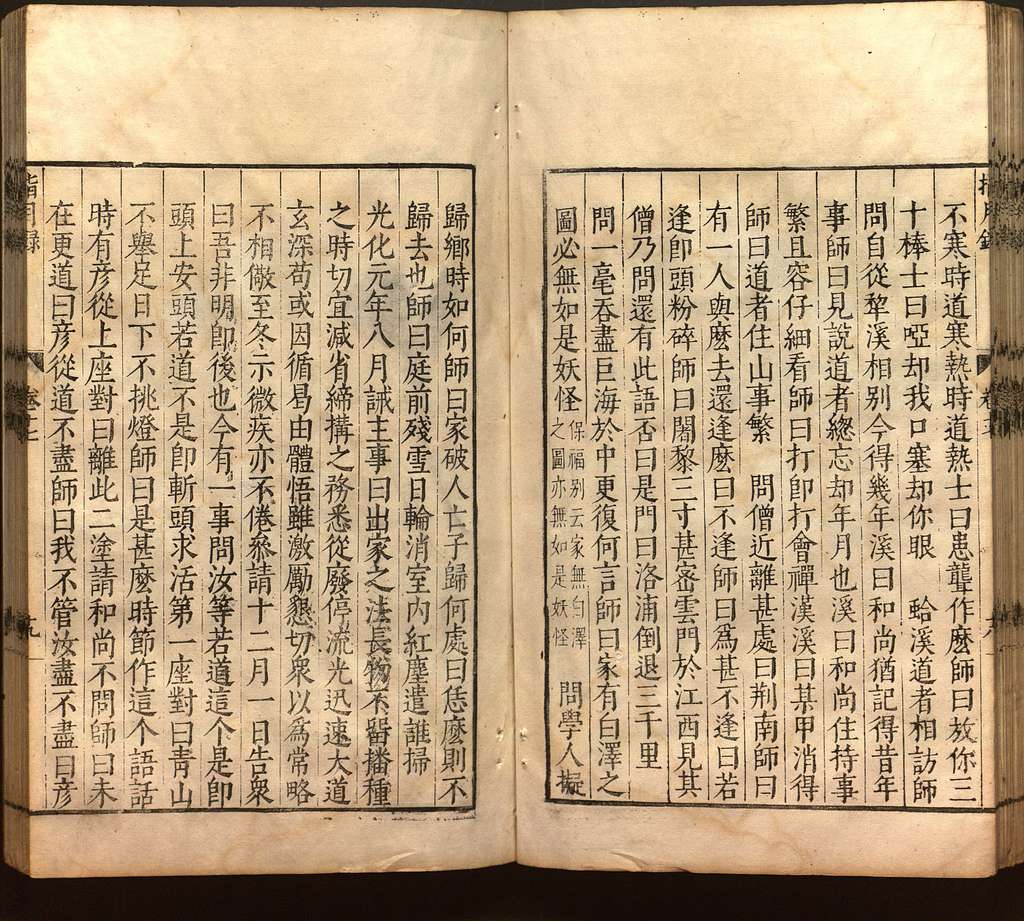 不寒時道寒熱時道熱士曰患聾作麼師曰放你三
十棒士曰啞却我口塞却你眼　蛤溪道者相訪師
問自從犂溪相別今得幾年溪曰和尚猶記得昔年
事師曰見說道者緫忘却年月也溪曰和尚住持事
繁且容仔細看師曰打卽打會禪漢溪曰某甲消得
師曰道者住山事繁　問僧近離甚處曰荆南師曰
有一人與麼去還逢麼曰不逢師曰爲甚不逢曰若
逢卽頭粉碎師曰闍黎三寸甚密雲門於江西見其
僧乃問還有此語否曰是門曰洛浦倒退三千里
問一毫吞盡巨海於中更復何言師曰家有白澤之
圖必無如是妖怪保福别云家無白澤之圖亦無如是妖怪　問學人擬
歸鄉時如何師曰家破人亡子歸何處曰恁麼則不
歸去也師曰庭前殘雪日輪消室内紅塵遣誰掃
光化元年八月誡主事曰出家之法長物不畱播種
之時切宜減省締搆之務悉從廢停流光迅速大道
玄深苟或因循曷由體悟雖激勵懇切衆以爲常略
不相儆至冬示微疾亦不倦叅請十二月一日告衆
曰吾非明卽後也今有一事問汝等若道這个是卽
頭上安頭若道不是卽斬頭求活第一座對曰青山
不舉足日下不挑燈師曰是甚麼時節作這个語話
時有彦從上座對曰離此二塗請和尚不問師曰未
在更道曰彦從道不盡師曰我不管汝盡不盡曰彦
指月錄